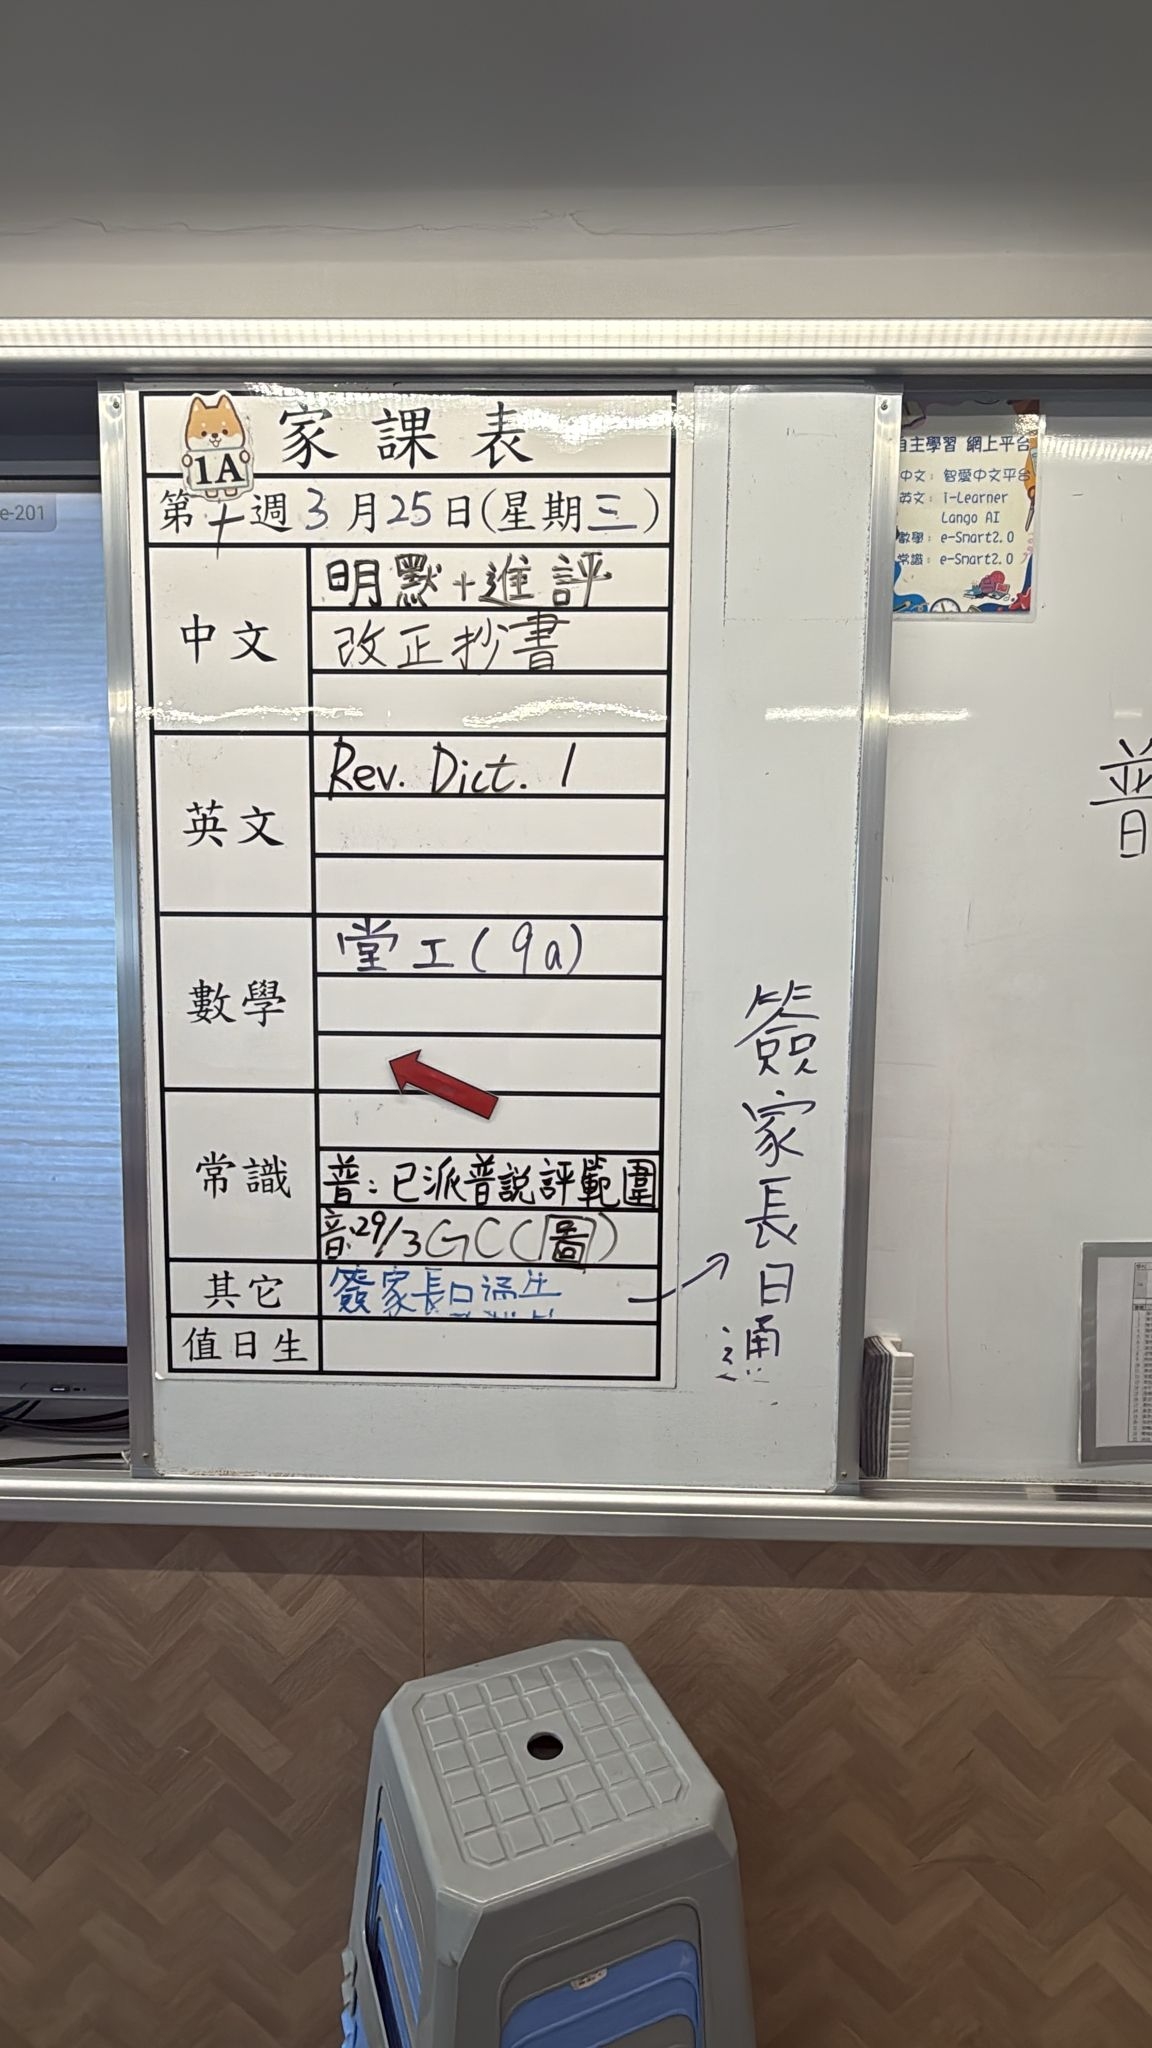 家課表
1A
第十週3月25日(星期三)
中文
明默+進評
改正抄書
英文
Rev. Dict. 1
數學
堂工(9a)
常識
普:已派普說評範圍
音:29/3 GC(圖)
其它
簽家長日通
值日生
簽家長日通
e-201
自主學習 網上平台
中文: 智愛中文平台
英文: i-Learner
Lango AI
數學: e-Smart2.0
常識: e-Smart2.0
普